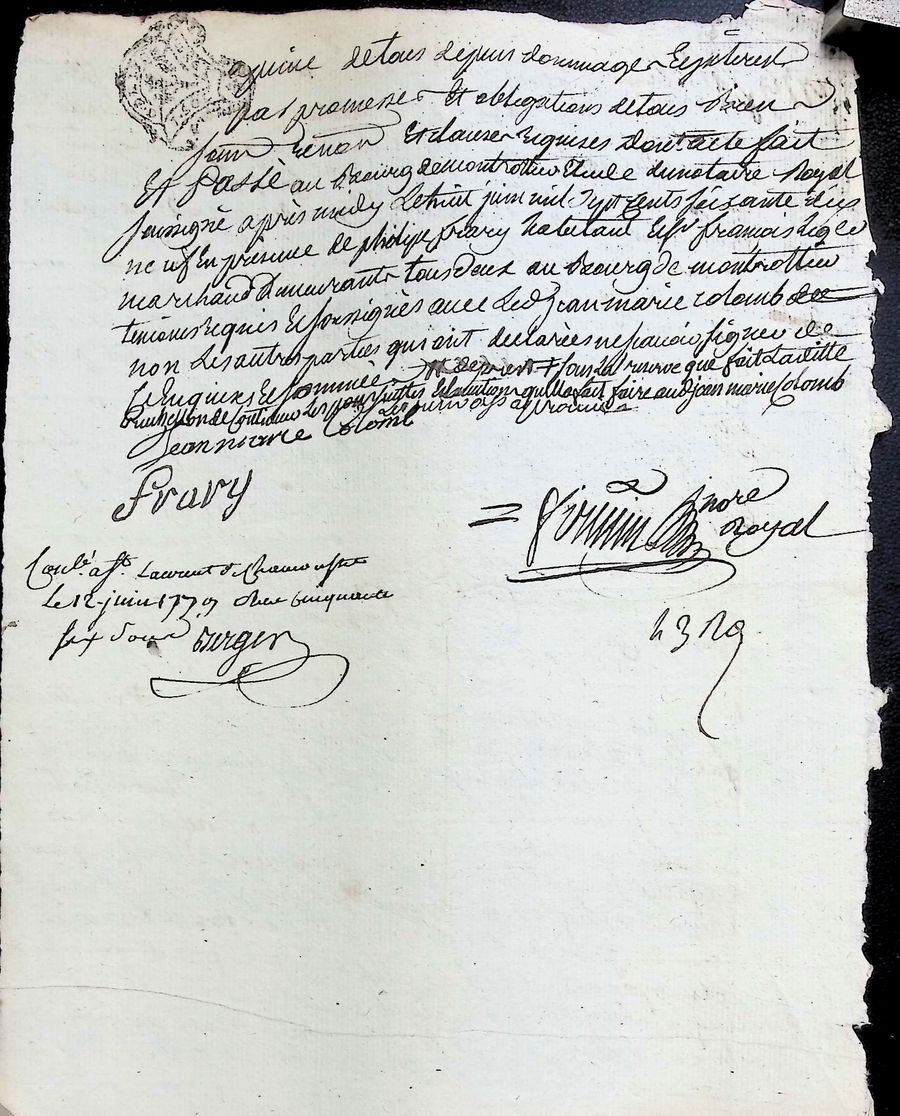 peine de tous depens dommage Et interest
par promesse Et obligations de tous Biens
Et clauses Requises dont acte fait
Et Passé au Bourg de montrottier Etude du notaire Royal
soussigné après midy Le huit juin mil sept cents soixante dix
neuf En présence de philipe fravy habitant Et Sr francois
marchand demeurants tous deux au Bourg de montrottier
temoins Requis Et soussignés avec Ledt jean marie colomb
non Les autres parties qui ont declarées ne scavoir signer de
ce Enquises Et sommées sous La reserve que fait Laditte
de Continuer Les poursuittes quelle a fait faire audt jean marie Colomb
jean marie Colomb
fravy
nore
Royal
Conlé. a St. Laurent de Chamousset
Le 12 juin 1779 cinquante
six sous Berger